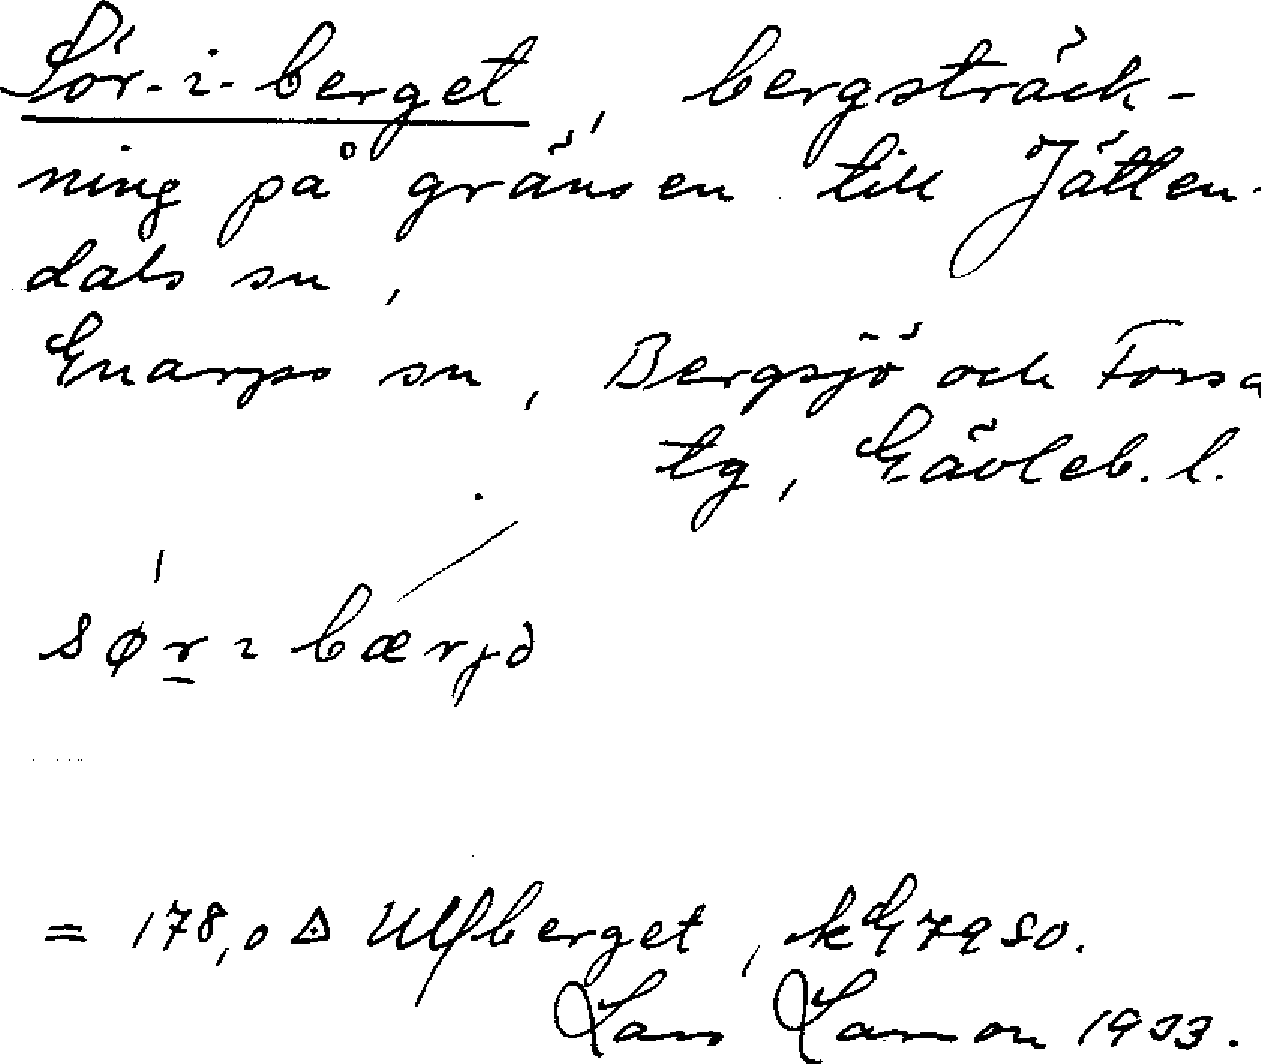 Sör-i-berget, bergsträck-
ning på gränsen till Jätten-
dals sn,
Gnarps sn, Bergsjö och Forsa
tg, Gävleb. l.
sørɩbærjə
= 178,0 △ Ulfberget,
Lars Larsson 1933.